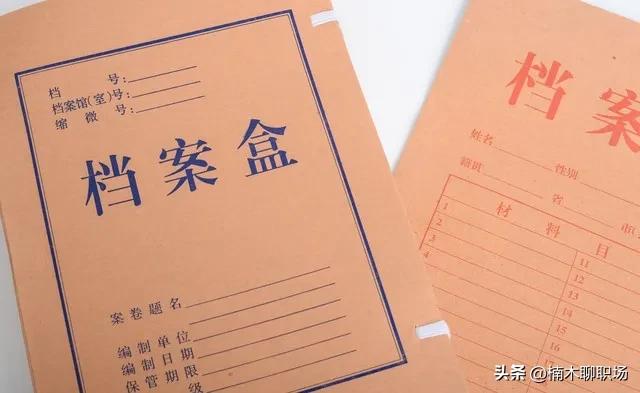 档 号:
档案馆(室)号:
缩 微 号:
档案盒
案 卷 题 名
编 制 单 位
编 制 日 期
保 管 期 限
级
档案
姓名 性别
籍贯 省
材 料 目
1
2
3
4
11
12
13
14
15
16
17
头条 @楠木聊职场